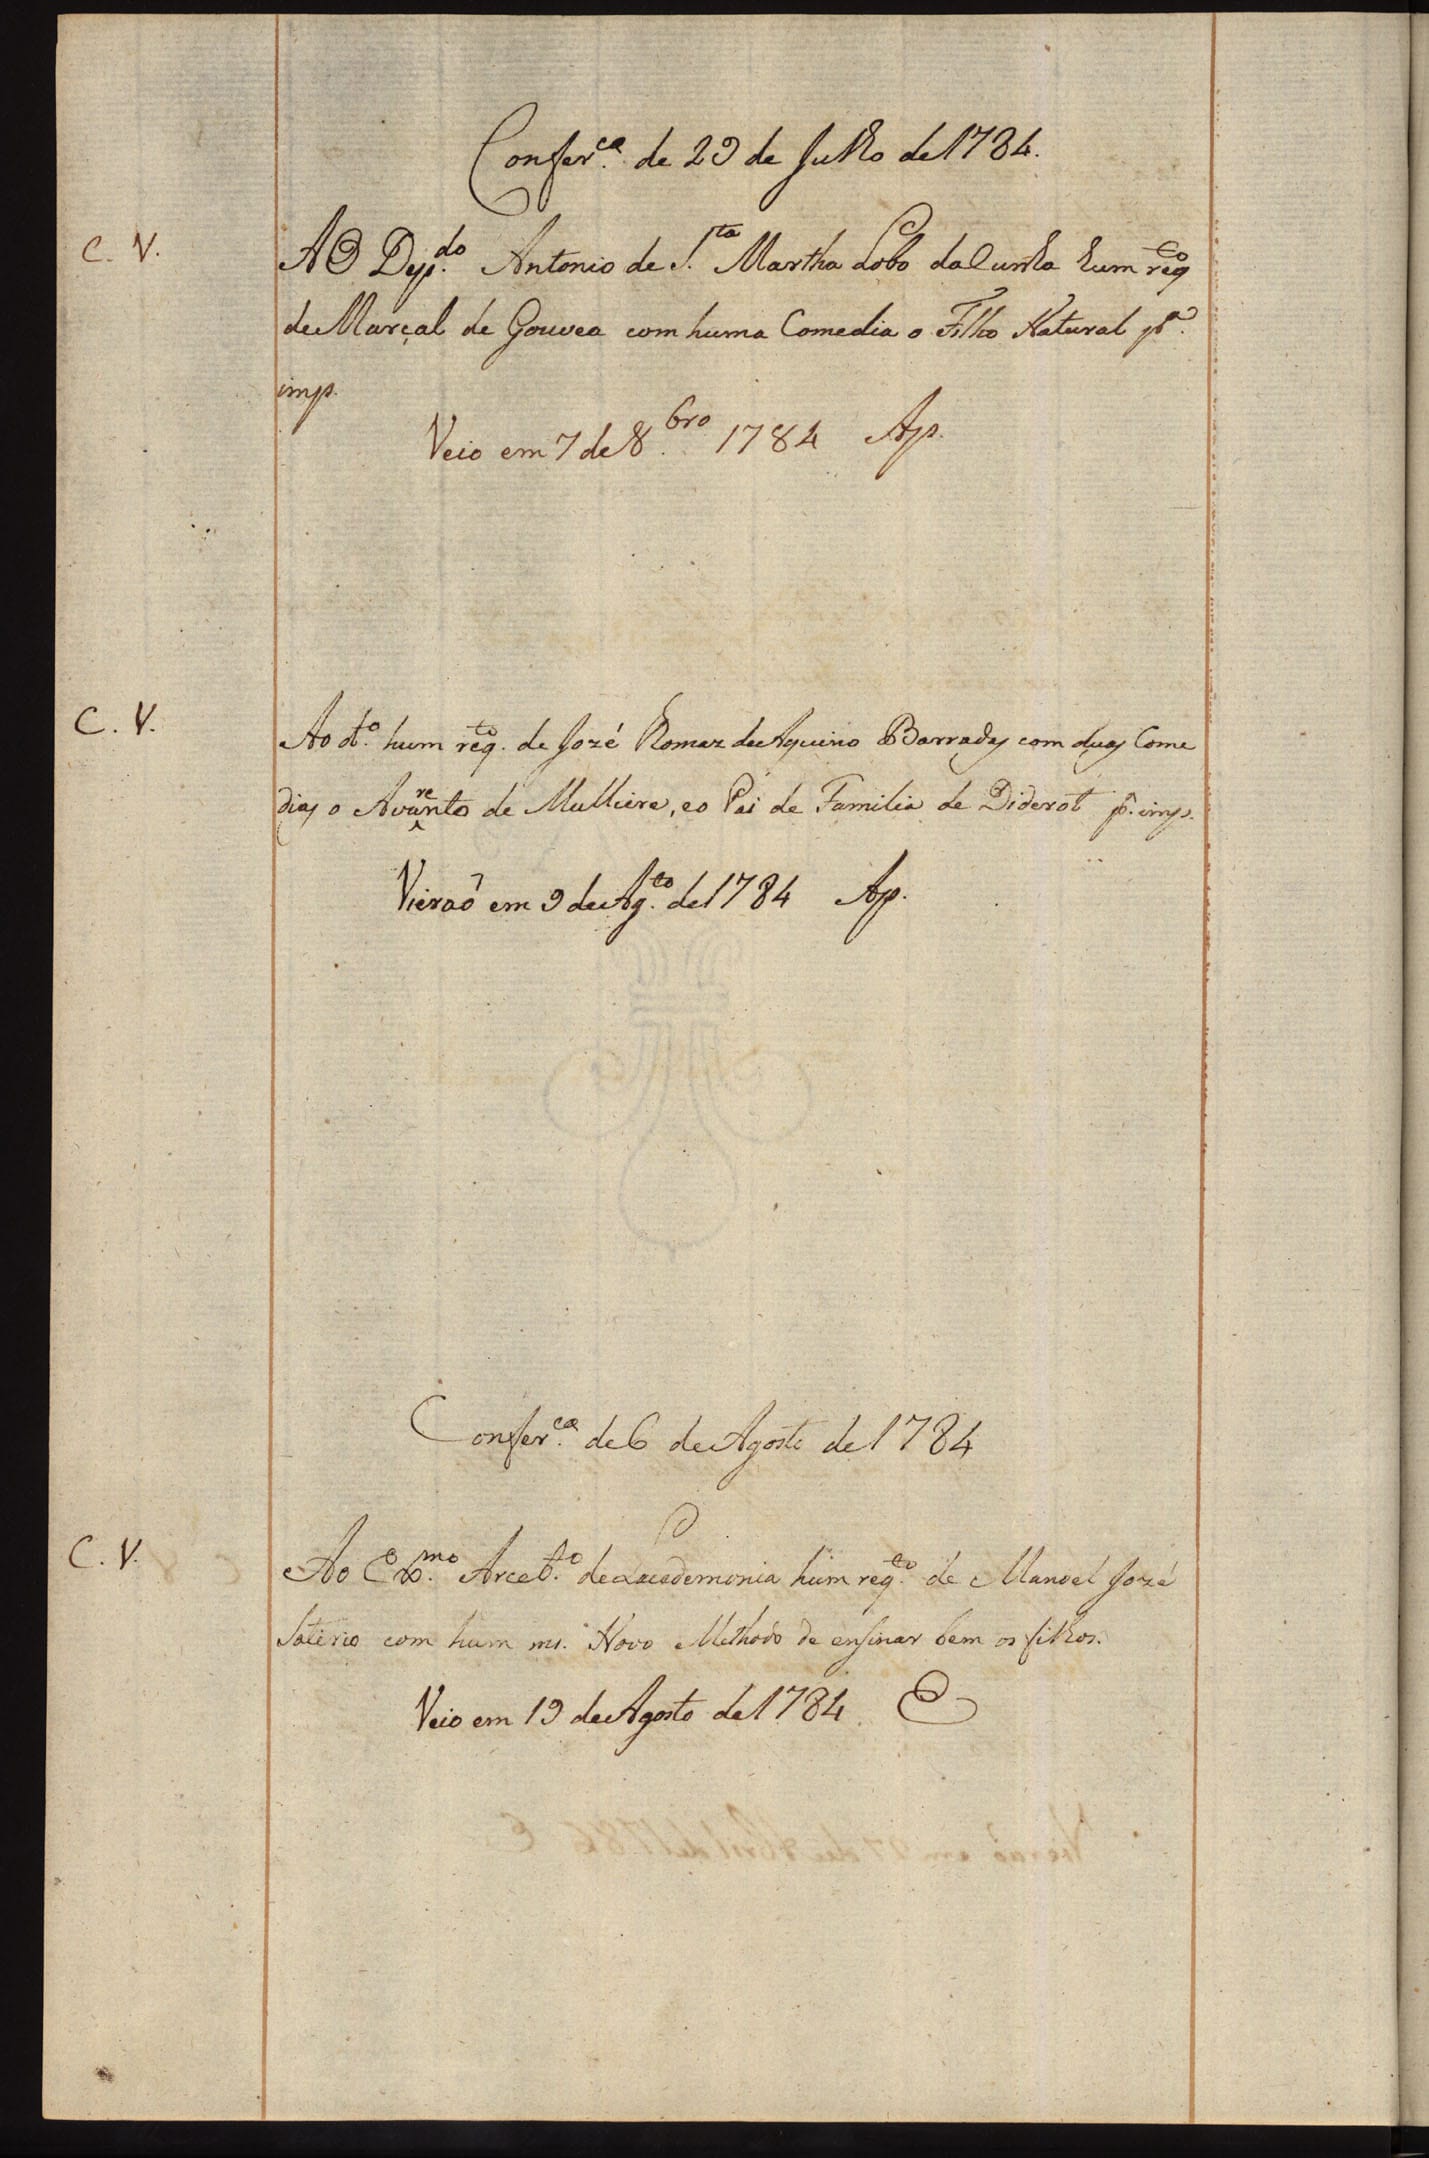 Confer.ca de 29 de Julho de 1784.
C. V.
AO Dep.do Antonio de S.ta Martha Lobo da Cunha hum req.to
de Marçal de Gouvea com huma Comedia o Filho Natural p.a
imp.
Veio em 7 de 8.bro 1784 Ap.
C. V.
Ao d.o hum req.to de Jozé Romaz de Aquino Barradas com duas Come
dias o Avarento de Mulliere, e o Pai de Familia de Diderot p.a imp.
Vieraõ em 9 de Ag.to de 1784 Ap.
Confer.ca de 6 de Agosto de 1784
C. V.
Ao Ex.mo Arceb.o de Lacedemonia hum req.to de Manoel Jozé
Saterio com hum ms. Novo Methodo de ensinar bem os filhos.
Veio em 19 de Agosto de 1784 E